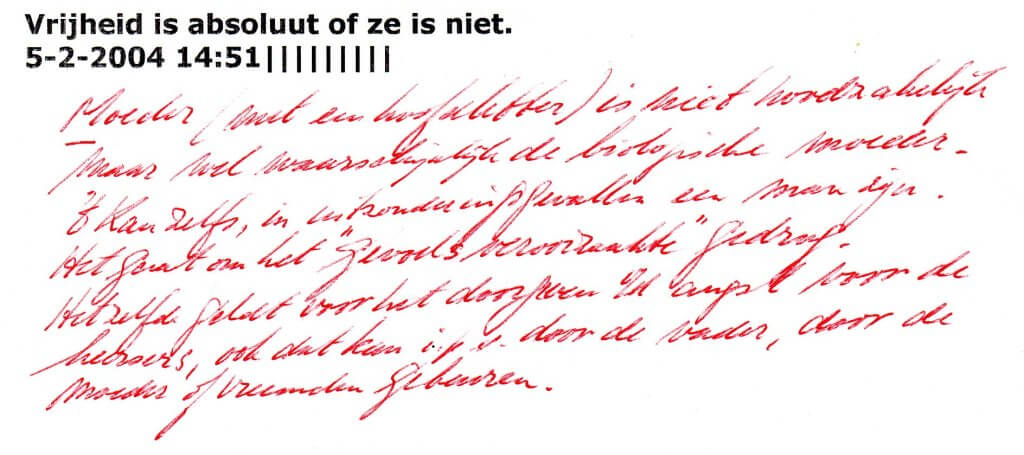 Vrijheid is absoluut of ze is niet.
5-2-2004 14:51||||||||||
Moeder (met een hoofdletter) is niet noodzakelijk
maar wel waarschijnlijk de biologische moeder.
't Kan zelfs, in uitzonderingsgevallen een man zijn.
Het gaat om het "gevoels veroorzaakte" gedrag.
Hetzelfde geldt voor het doorgeven vd angst voor de
heersers, ook dat kan i.p.v. door de vader, door de
moeder of vreemden gebeuren.